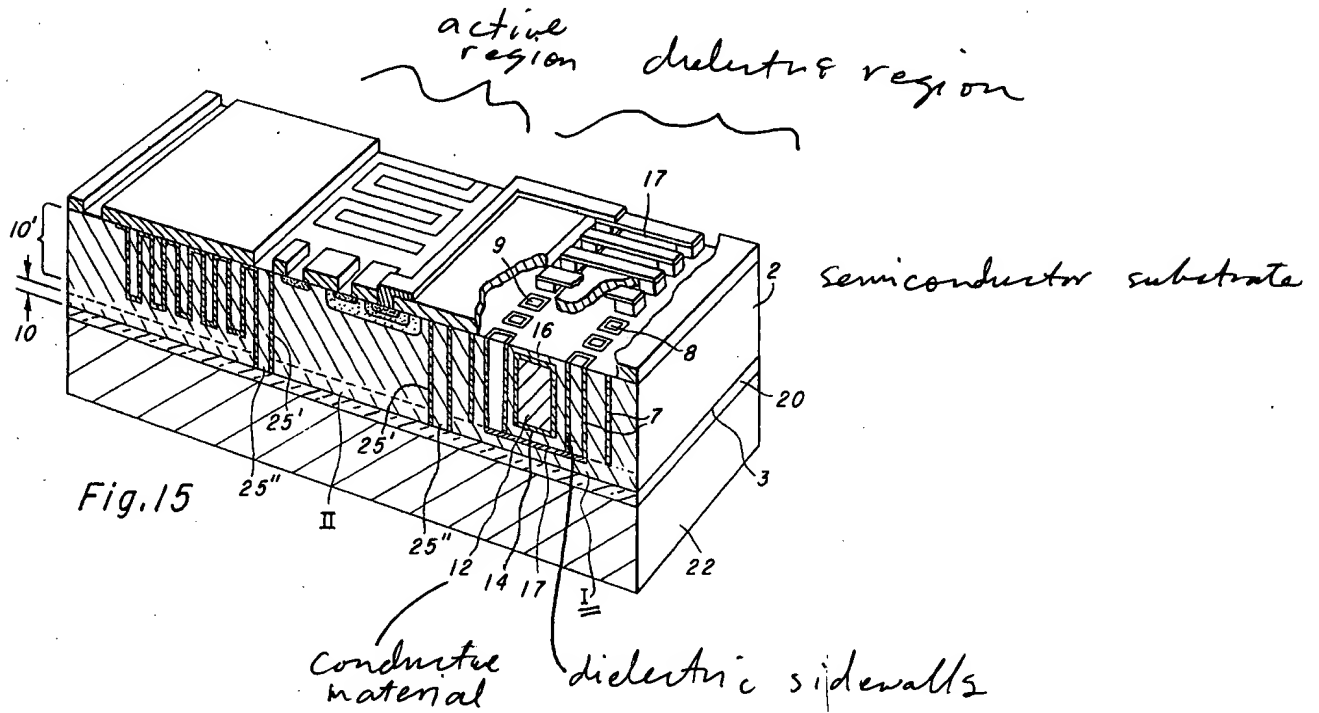 active
region dielectric region
17
10'
9
2
semiconductor substrate
10
16
8
20
25'
25'
7
3
Fig.15
25"
II
25"
22
12
14
17
I
conductive
material
dielectric sidewalls